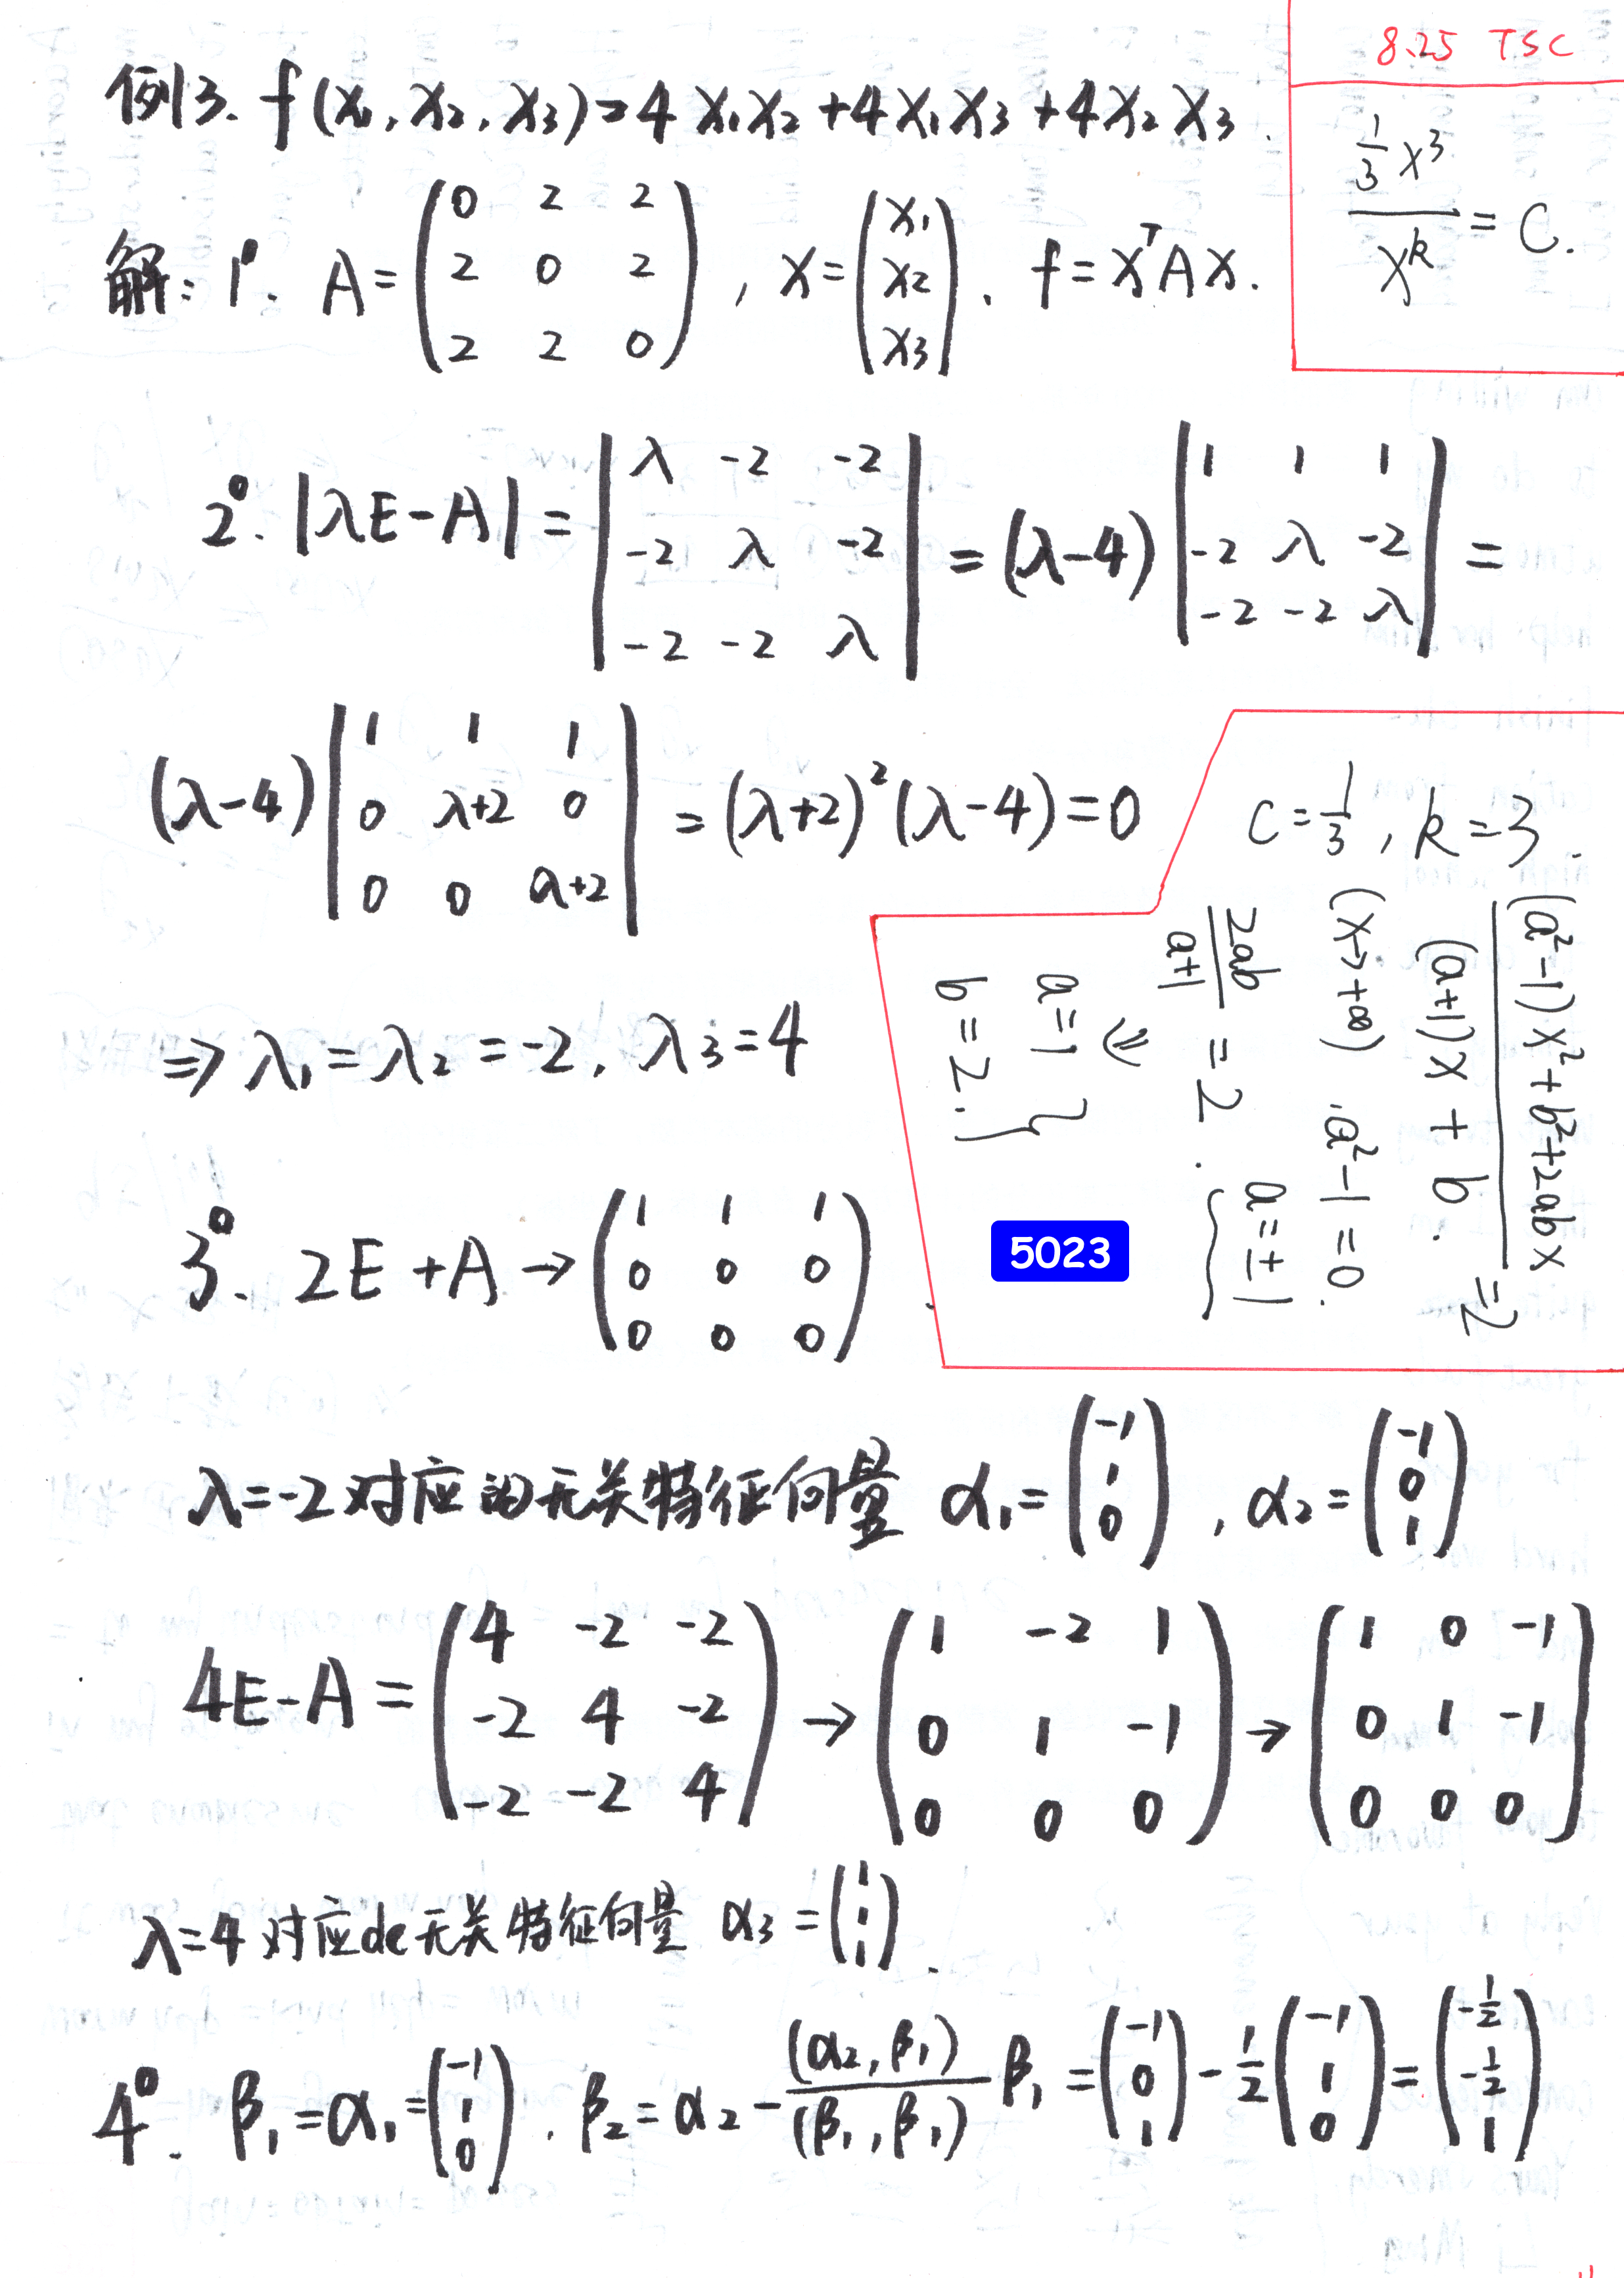 8.25 TSC
例3. f(x₁,x₂,x₃)=4x₁x₂+4x₁x₃+4x₂x₃.
\frac{\frac{1}{3}x³}{x^k}=C.
解: 1°. A=\begin{pmatrix}0&2&2\\2&0&2\\2&2&0\end{pmatrix}, x=\begin{pmatrix}x₁\\x₂\\x₃\end{pmatrix}. f=x^TAx.
2°. |λE-A|=\begin{vmatrix}λ&-2&-2\\-2&λ&-2\\-2&-2&λ\end{vmatrix}=(λ-4)\begin{vmatrix}1&1&1\\-2&λ&-2\\-2&-2&λ\end{vmatrix}=
(λ-4)\begin{vmatrix}1&1&1\\0&λ+2&0\\0&0&λ+2\end{vmatrix}=(λ+2)²(λ-4)=0
⇒ λ₁=λ₂=-2, λ₃=4
C=\frac{1}{3}, k=3.
\frac{(a²-1)x²+b²+2abx}{(a+1)x+b.}=2
(x→+∞) .a²-1=0.
a=±1
\frac{2ab}{a+1}=2.
⇒
a=1
b=2. }
5023
3°. 2E+A→\begin{pmatrix}1&1&1\\0&0&0\\0&0&0\end{pmatrix}.
λ=-2对应的无关特征向量 α₁=\begin{pmatrix}-1\\1\\0\end{pmatrix}, α₂=\begin{pmatrix}-1\\0\\1\end{pmatrix}
4E-A=\begin{pmatrix}4&-2&-2\\-2&4&-2\\-2&-2&4\end{pmatrix}→\begin{pmatrix}1&-2&1\\0&1&-1\\0&0&0\end{pmatrix}→\begin{pmatrix}1&0&-1\\0&1&-1\\0&0&0\end{pmatrix}
λ=4对应de无关特征向量 α₃=\begin{pmatrix}1\\1\\1\end{pmatrix}.
4°. β₁=α₁=\begin{pmatrix}-1\\1\\0\end{pmatrix}. β₂=α₂-\frac{(α₂,β₁)}{(β₁,β₁)}β₁=\begin{pmatrix}-1\\0\\1\end{pmatrix}-\frac{1}{2}\begin{pmatrix}-1\\1\\0\end{pmatrix}=\begin{pmatrix}-\frac{1}{2}\\-\frac{1}{2}\\1\end{pmatrix}